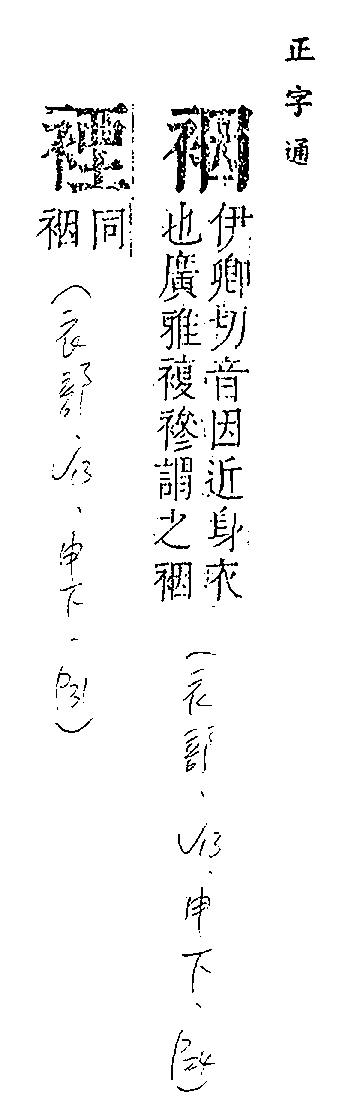 正字通
裀
伊卿切音因近身衣
也廣雅複襂謂之裀
(衣部、V13、申下、P24)
同
裀
(衣部、V13、申下、P31)